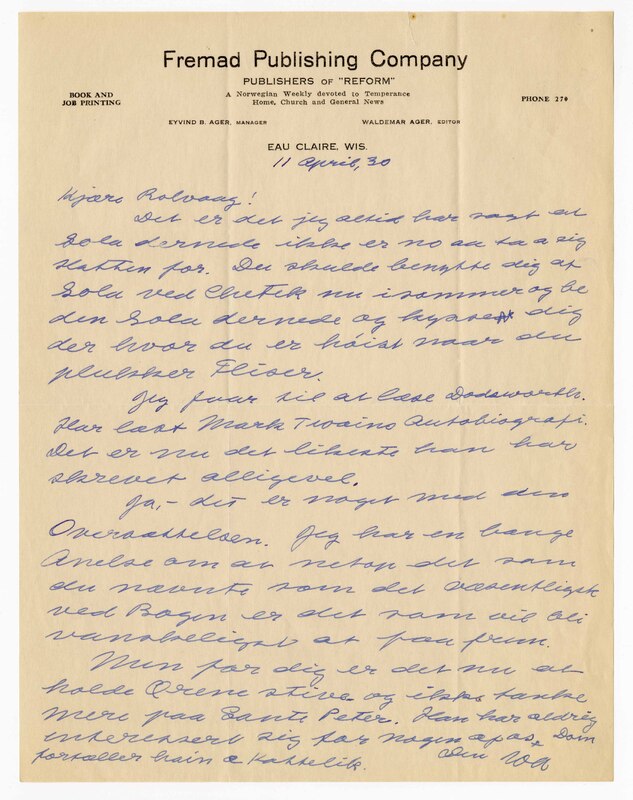 Fremad Publishing Company
PUBLISHERS OF "REFORM"
BOOK AND
JOB PRINTING
A Norwegian Weekly devoted to Temperance
Home, Church and General News
PHONE 270
EYVIND B. AGER, MANAGER
WALDEMAR AGER, EDITOR
EAU CLAIRE, WIS.
11 April, 30
Kjære Rolvaag!
Det er det jeg altid har sagt at
Sola dernede ikke er no aa ta a sig
Hatten for. Du skulde benytte dig af
Sola ved Chetek nu isommer og be
den Sola dernede og kysse dig
der hvor du er høist naar du
plukker Fliser.
Jeg faar til at læse Dodsworth.
Har læst Mark Twains Autobiografi.
Det er nu det likeste han har
skrevet alligevel.
Ja, - det er noget med den
Oversættelsen. Jeg har en bange
Anelse om at netop det som
du nævnte som det væsentligste
ved Bogen er det som vil bli
vanskeligst at faa frem.
Men for dig er det nu at
holde Ørene stive og ikke tænke
mere paa Sante Peter. Han har aldrig
interessert sig for nogen af os. Dom
fortæller han e Kattelik.
Din WA